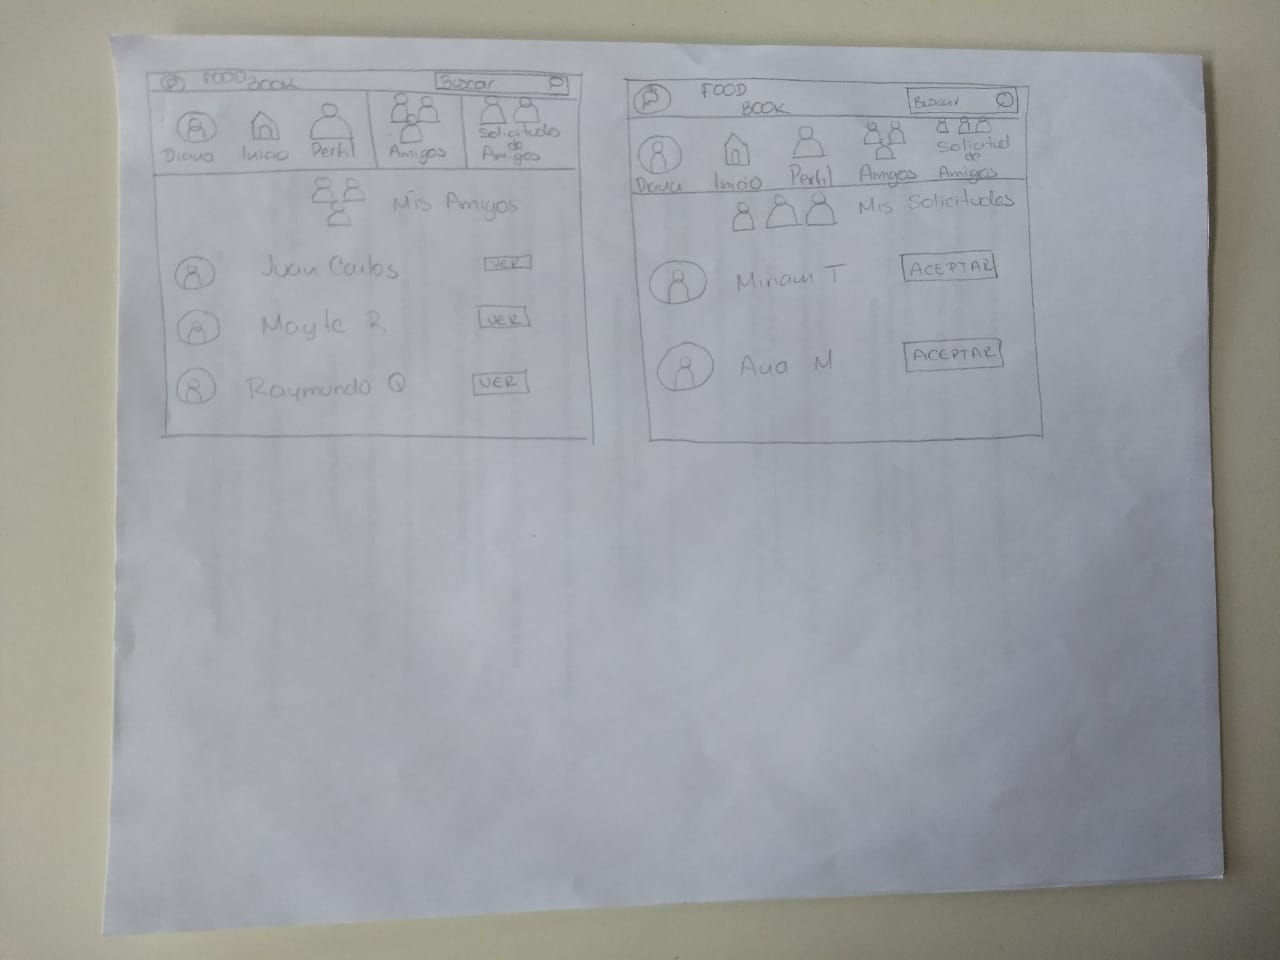 FOOD BOOK
Buscar
Diana
Inicio
Perfil
Amigos
Solicitudes
de
Amigos
Mis Amigos
Juan Carlos
VER
Mayte R
VER
Raymundo Q
VER
FOOD
BOOK
Buscar
Diana
Inicio
Perfil
Amigos
Solicitud
de
Amigos
Mis Solicitudes
Miriam T
ACEPTAR
Ana M
ACEPTAR